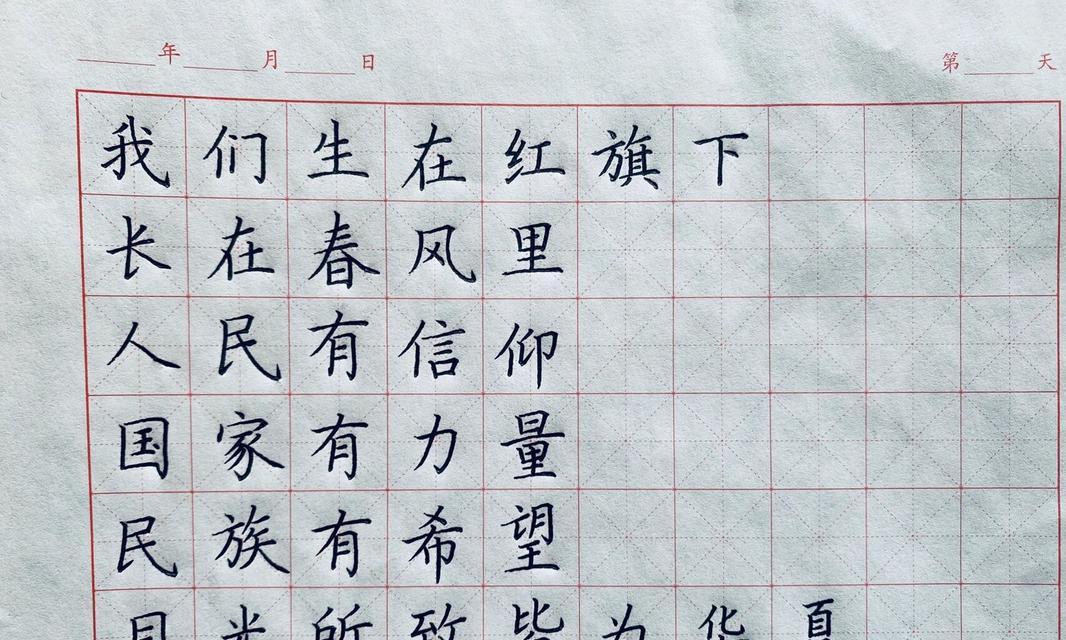 年 月 日 第 天
我们生在红旗下
长在春风里
人民有信仰
国家有力量
民族有希望
目光所致皆为华夏